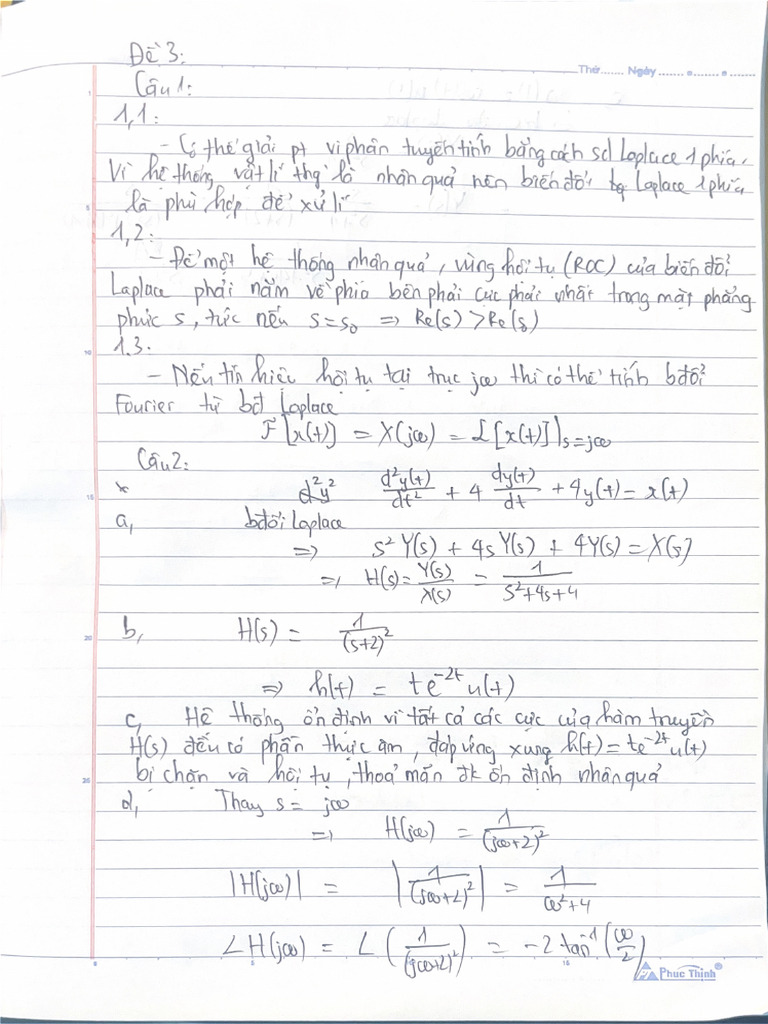 Đề 3:
Thứ...... Ngày ...... ......
Câu 1:
1,1:
- Có thể giải pt vi phân tuyến tính bằng cách sd Laplace 1 phía.
Vì hệ thống vật lí thg là nhân quả nên biến đổi Laplace 1 phía
là phù hợp để xử lí
1,2:
- Để một hệ thống nhân quả, vùng hội tụ (ROC) của biến đổi
Laplace phải nằm về phía bên phải cực phải nhất trong mặt phẳng
phức s, tức nếu s=s₀ => Re(s) > Re(s₀)
1.3:
- Nếu tín hiệu hội tụ tại trục jω thì có thể tính bđổi
Fourier từ bđ Laplace
F[x(t)] = X(jω) = L[x(t)]|s=jω
Câu 2:
d²y² d²y(t)/dt² + 4 dy(t)/dt + 4y(t) = x(t)
a, bđổi Laplace
=> s²Y(s) + 4sY(s) + 4Y(s) = X(s)
=> H(s) = Y(s)/X(s) = 1/(s²+4s+4)
b, H(s) = 1/(s+2)²
=> h(t) = te⁻²ᵗu(t)
c, Hệ thống ổn định vì tất cả các cực của hàm truyền
H(s) đều có phần thực âm, đáp ứng xung h(t) = te⁻²ᵗu(t)
bị chặn và hội tụ, thoả mãn đk ổn định nhân quả
d, Thay s = jω
=> H(jω) = 1/(jω+2)²
|H(jω)| = |1/(jω+2)²| = 1/(ω²+4)
∠H(jω) = ∠(1/(jω+2)²) = -2 tan⁻¹(ω/2)
Phuc Thinh®